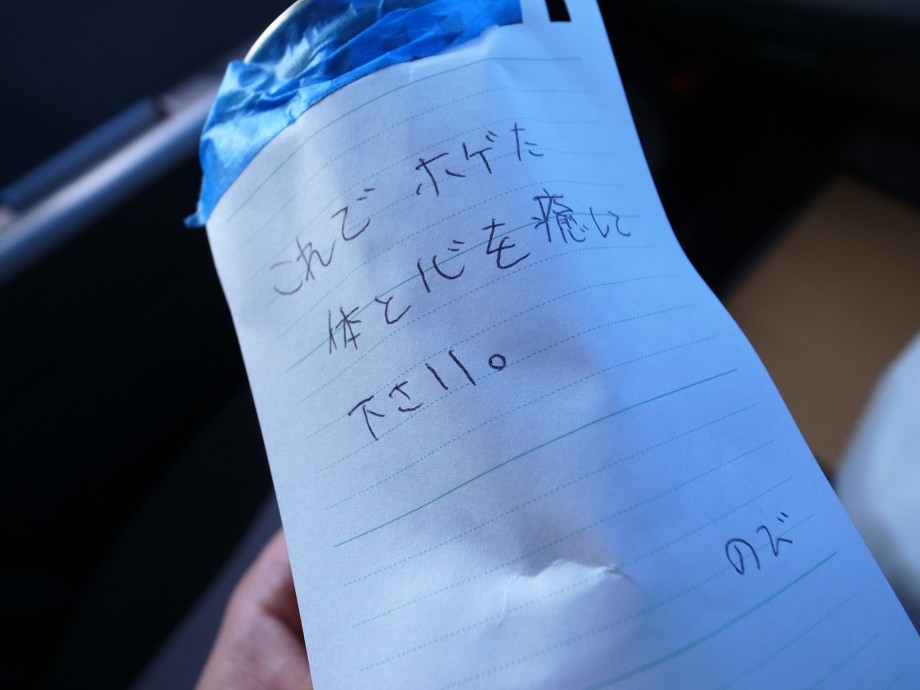 これで ホゲた
体と心を癒して
下さい。
のび